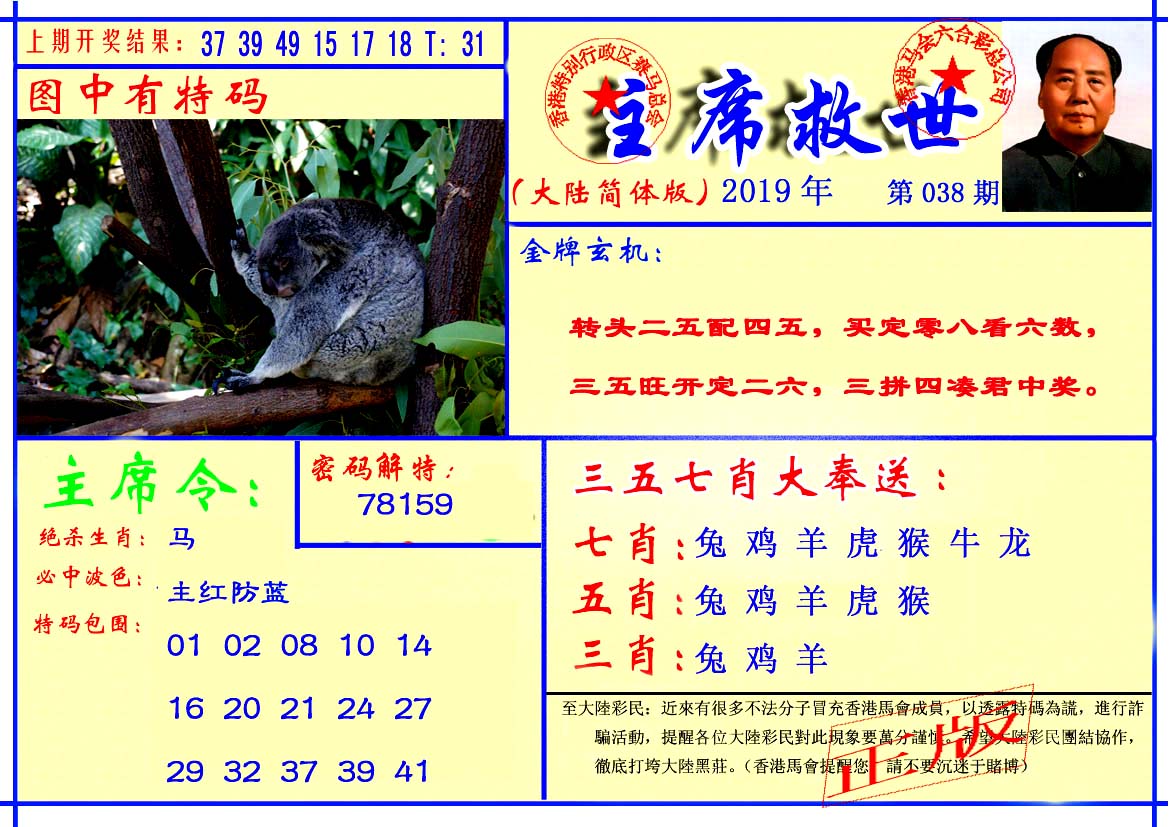 上期开奖结果：37 39 49 15 17 18 T: 31
图中有特码
香港特别行政区赛马总会
香港马会六合彩总公司
主席救世
（大陆简体版）2019 年 第 038 期
金牌玄机：
转头二五配四五，买定零八看六数，
三五旺开定二六，三拼四凑君中奖。
主席令：
绝杀生肖：马
必中波色：主红防蓝
特码包围：
01 02 08 10 14
16 20 21 24 27
29 32 37 39 41
密码解特：
78159
三五七肖大奉送：
七肖：兔 鸡 羊 虎 猴 牛 龙
五肖：兔 鸡 羊 虎 猴
三肖：兔 鸡 羊
至大陸彩民：近來有很多不法分子冒充香港馬會成員，以透露特碼為謊，進行詐
騙活動，提醒各位大陸彩民對此現象要萬分謹慎。希望大陸彩民團結協作，
徹底打垮大陸黑莊。（香港馬會提醒您 請不要沉迷于賭博）
正版